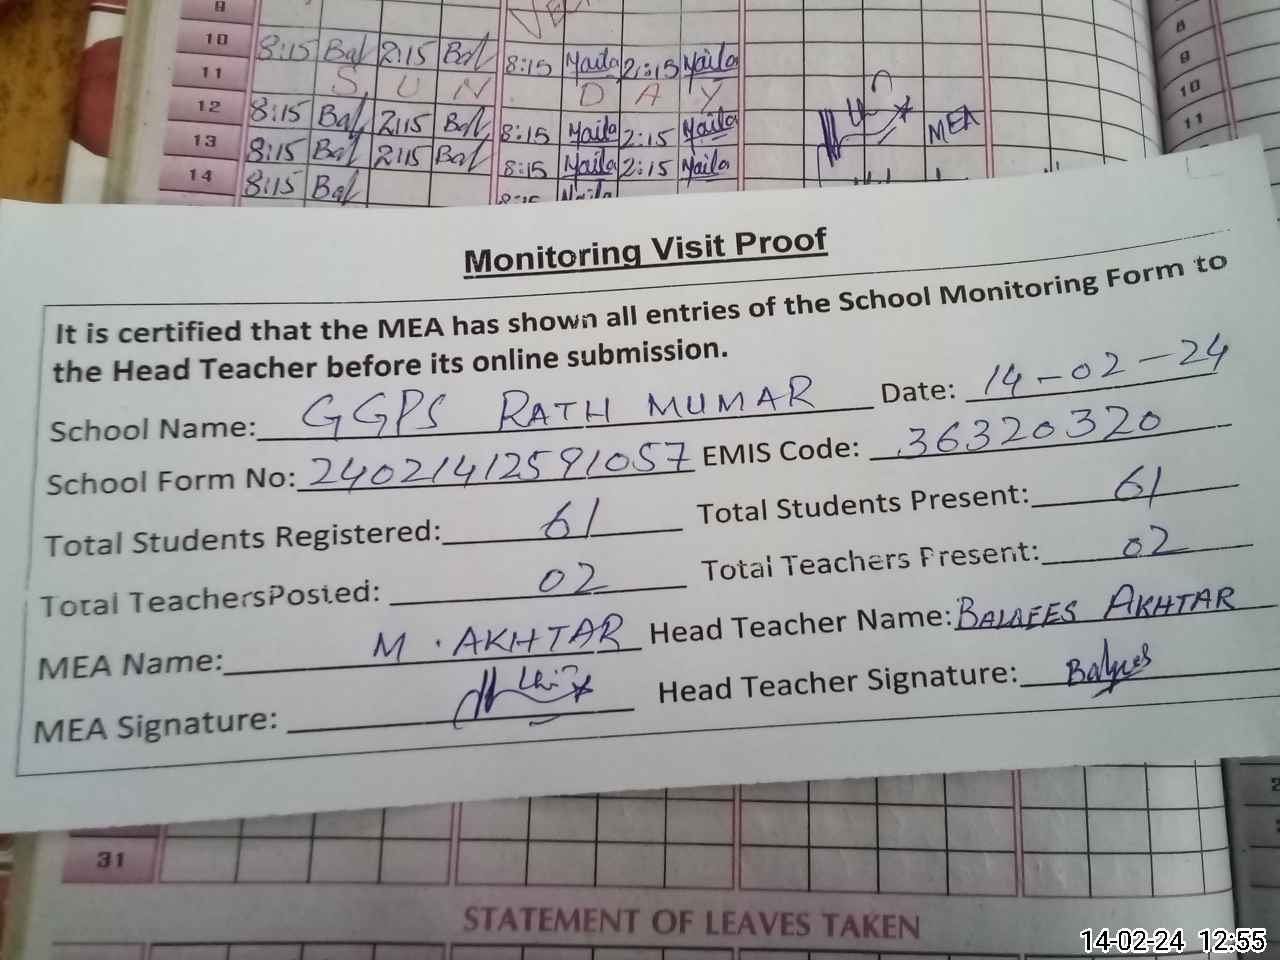 9
10 8:15 Bal 2:15 Bal 8:15 Naila 2:15 Naila
11 S U N D A Y
12 8:15 Bal 2:15 Bal 8:15 Naila 2:15 Naila
13 8:15 Bal 2:15 Bal 8:15 Naila 2:15 Naila
14 8:15 Bal 8:15 Naila
MEA
8
9
10
11
Monitoring Visit Proof
It is certified that the MEA has shown all entries of the School Monitoring Form to
the Head Teacher before its online submission.
School Name: GGPS RATH MUMAR Date: 14-02-24
School Form No: 24021412591057 EMIS Code: 36320320
Total Students Registered: 61 Total Students Present: 61
Total TeachersPosted: 02 Total Teachers Present: 02
MEA Name: M. AKHTAR Head Teacher Name: BALQEES AKHTAR
MEA Signature: Head Teacher Signature: Balqees
31
STATEMENT OF LEAVES TAKEN
14-02-24 12:55